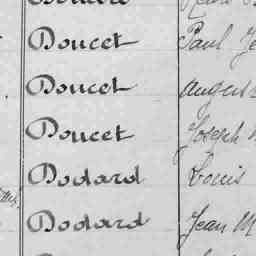 Doucet Paul
Doucet August
Doucet Joseph
Dodard Louis
Dodard Jean M